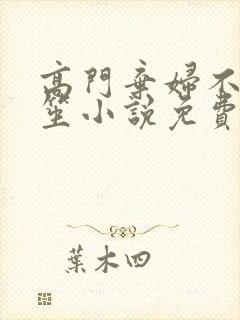 高門棄婦不
笙小說免費
葉木四